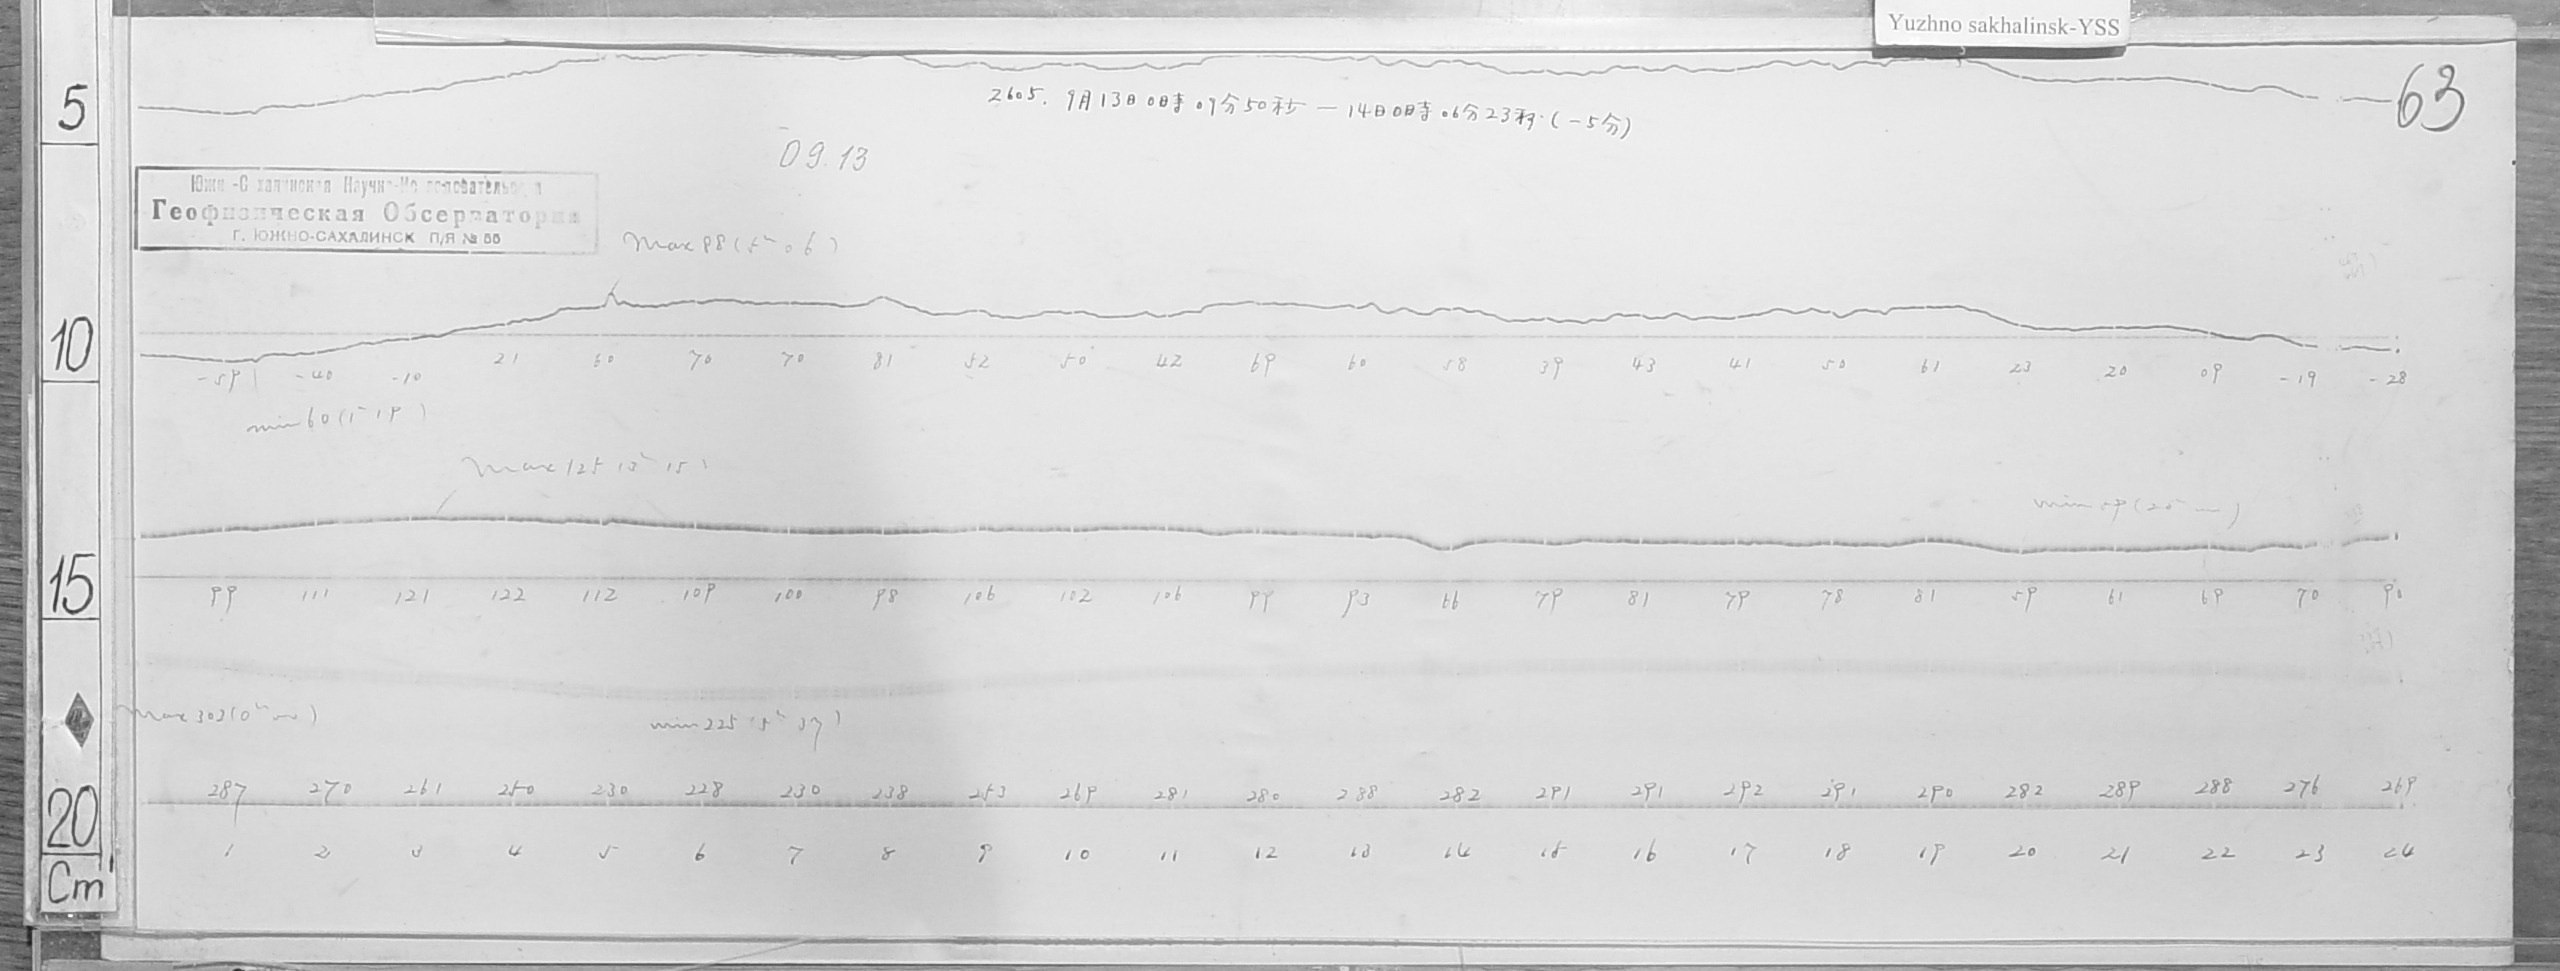 Yuzhno sakhalinsk-YSS
63
2605. 9月13日0時09分50秒 — 14日0時06分23秒 (-5分)
09.13
Геофизическая Обсерватория
Г. ЮЖНО-САХАЛИНСК П/Я № 55
max 98 (5h 06)
-59 -40 -10 21 60 70 70 81 52 50 42 69 60 58 39 43 41 50 61 23 20 09 -19 -28
min 60 (1h 19)
max 125 (3h 15)
min 59 (20h
99 111 121 122 112 109 100 98 106 102 106 99 93 66 79 81 79 78 81 59 61 69 70 90
max 303 (0h
min 225 (5h 37)
287 270 261 250 230 228 230 238 253 269 281 280 288 282 291 291 292 291 290 282 289 288 276 269
1 2 3 4 5 6 7 8 9 10 11 12 13 14 15 16 17 18 19 20 21 22 23 24
5
10
15
20
Cm